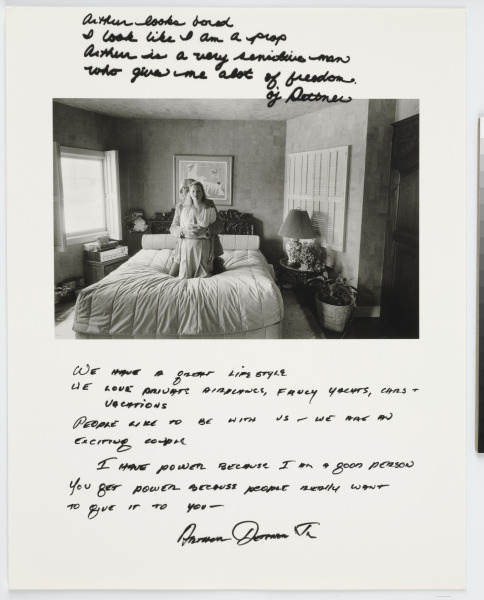 Arthur looks bored
I look like I am a prop
Arthur is a very sensitive man
who gives me alot of freedom.
oj Dettner
WE HAVE A GREAT LIFESTYLE
WE LOVE PRIVATE AIRPLANES, FANCY YACHTS, CARS +
VACATIONS
PEOPLE LIKE TO BE WITH US - WE ARE AN
EXCITING COUPLE
I HAVE POWER BECAUSE I AM A GOOD PERSON
YOU GET POWER BECAUSE PEOPLE REALLY WANT
TO GIVE IT TO YOU—
Arthur Dettner Jr